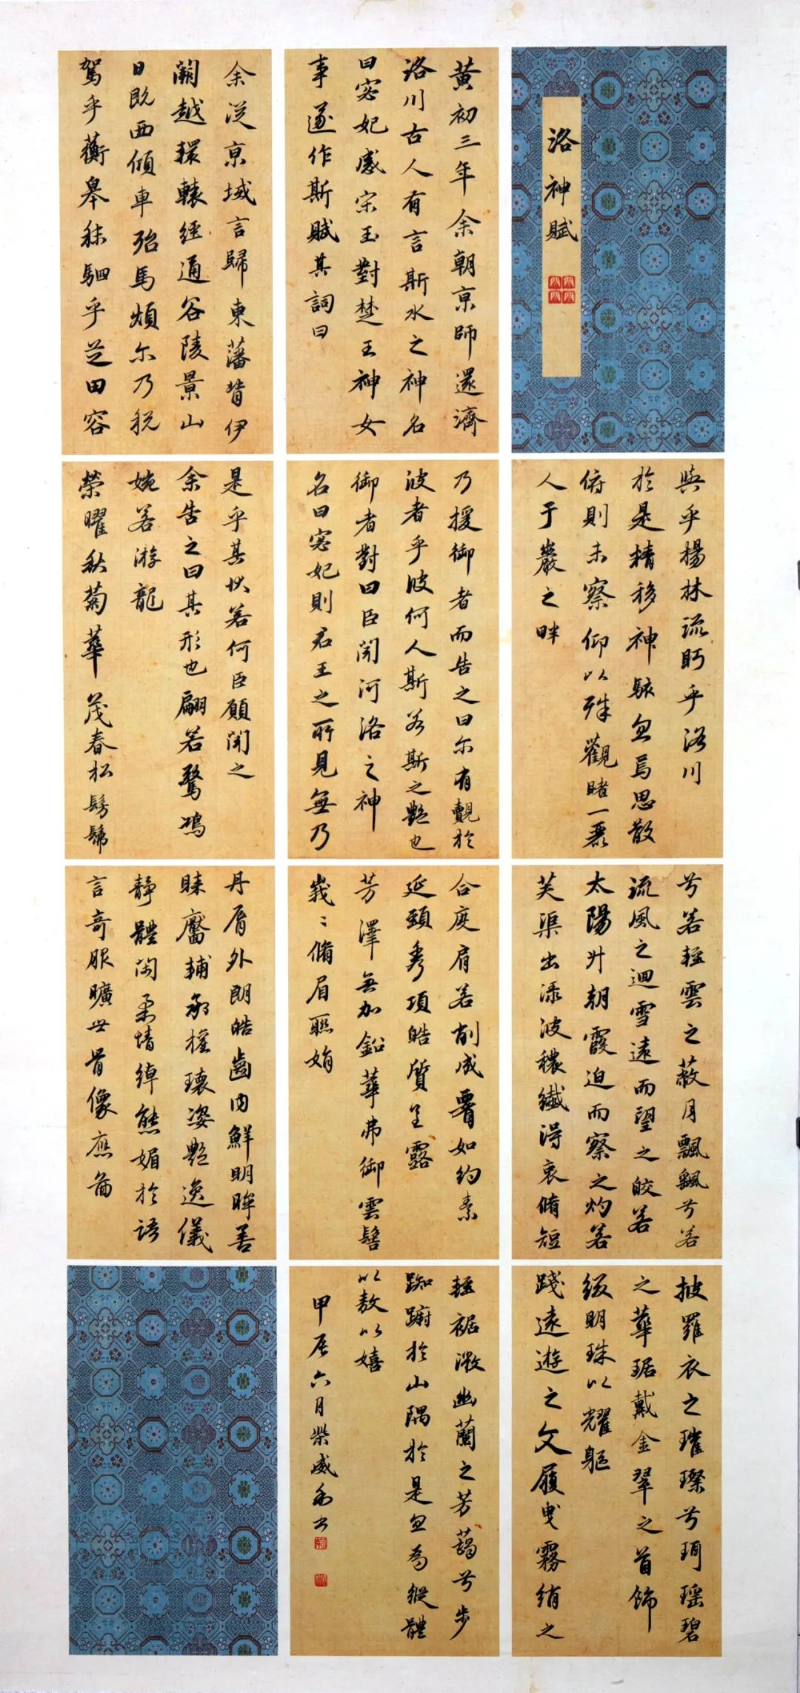 洛神賦
黃初三年余朝京師還濟
洛川古人有言斯水之神名
曰宓妃感宋玉對楚王神女
事遂作斯賦其詞曰
余從京域言歸東藩背伊
闕越轘轅經通谷陵景山
日既西傾車殆馬煩尔乃稅
駕乎蘅皋秣駟乎芝田容
與乎楊林流眄乎洛川
於是精移神駭忽焉思散
俯則未察仰以殊觀睹一麗
人于巖之畔
乃援御者而告之曰尔有覿於
彼者乎彼何人斯若斯之艷也
御者對曰臣聞河洛之神
名曰宓妃則君王之所見無乃
是乎其狀若何臣願聞之
余告之曰其形也翩若驚鴻
婉若游龍
榮曜秋菊華茂春松髣髴
兮若輕雲之蔽月飄颻兮若
流風之迴雪遠而望之皎若
太陽升朝霞迫而察之灼若
芙渠出淥波穠纖得衷脩短
合度肩若削成腰如約素
延頸秀項皓質呈露
芳澤無加鉛華弗御雲髻
峩〻脩眉聯娟
丹脣外朗皓齒內鮮明眸善
睞靨輔承權瓌姿艷逸儀
靜體閑柔情綽態媚於語
言奇服曠世骨像應圖
披羅衣之璀璨兮珥瑤碧
之華琚戴金翠之首飾
綴明珠以耀軀
踐遠遊之文履曳霧綃之
輕裾微幽蘭之芳藹兮步
踟躕於山隅於是忽焉縱體
以敖以嬉
甲辰六月柴威書